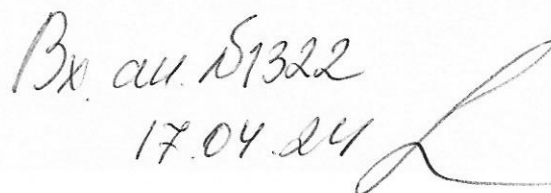 Вх. ан. №1322
17.04.24